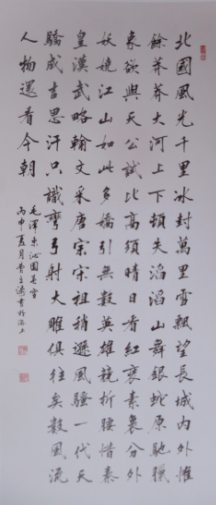 北國風光千里冰封萬里雪飄望長城內外惟
餘莽莽大河上下頓失滔滔山舞銀蛇原馳蠟
象欲與天公試比高須晴日看紅裝素裹分外
妖嬈江山如此多嬌引無數英雄競折腰惜秦
皇漢武略輸文采唐宗宋祖稍遜風騷一代天
驕成吉思汗只識彎弓射大雕俱往矣數風流
人物還看今朝
毛澤東沁園春雪
丙申夏月